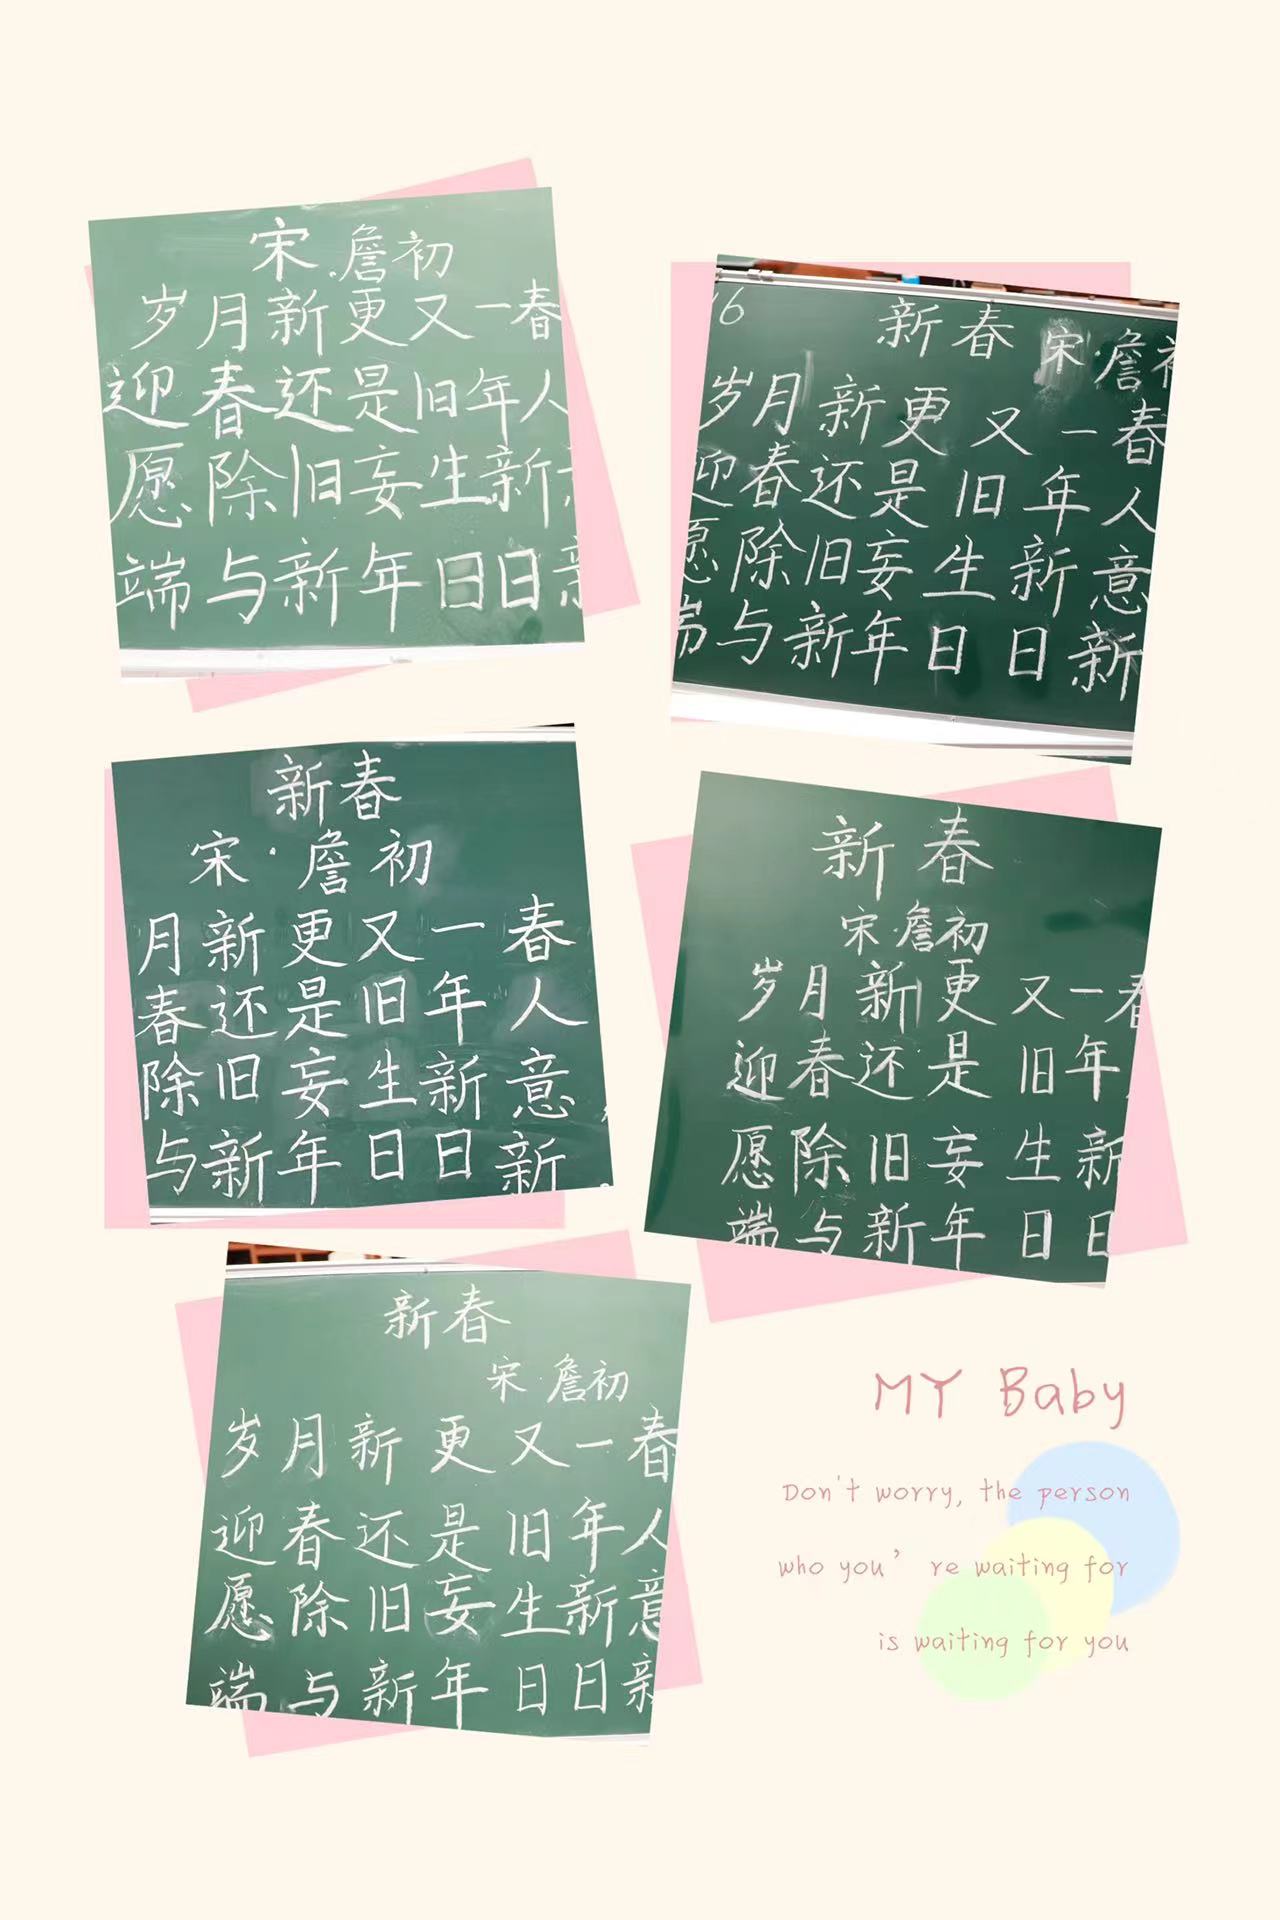 宋·詹初
岁月新更又一春
迎春还是旧年人
愿除旧妄生新
端与新年日日新
16
新春
宋·詹初
岁月新更又一春
迎春还是旧年人
愿除旧妄生新意
端与新年日日新
新春
宋·詹初
月新更又一春
春还是旧年人
除旧妄生新意
与新年日日新
新春
宋·詹初
岁月新更又一春
迎春还是旧年
愿除旧妄生新
端与新年日日
新春
宋·詹初
岁月新更又一春
迎春还是旧年人
愿除旧妄生新意
端与新年日日新
MY Baby
Don't worry, the person
who you’re waiting for
is waiting for you